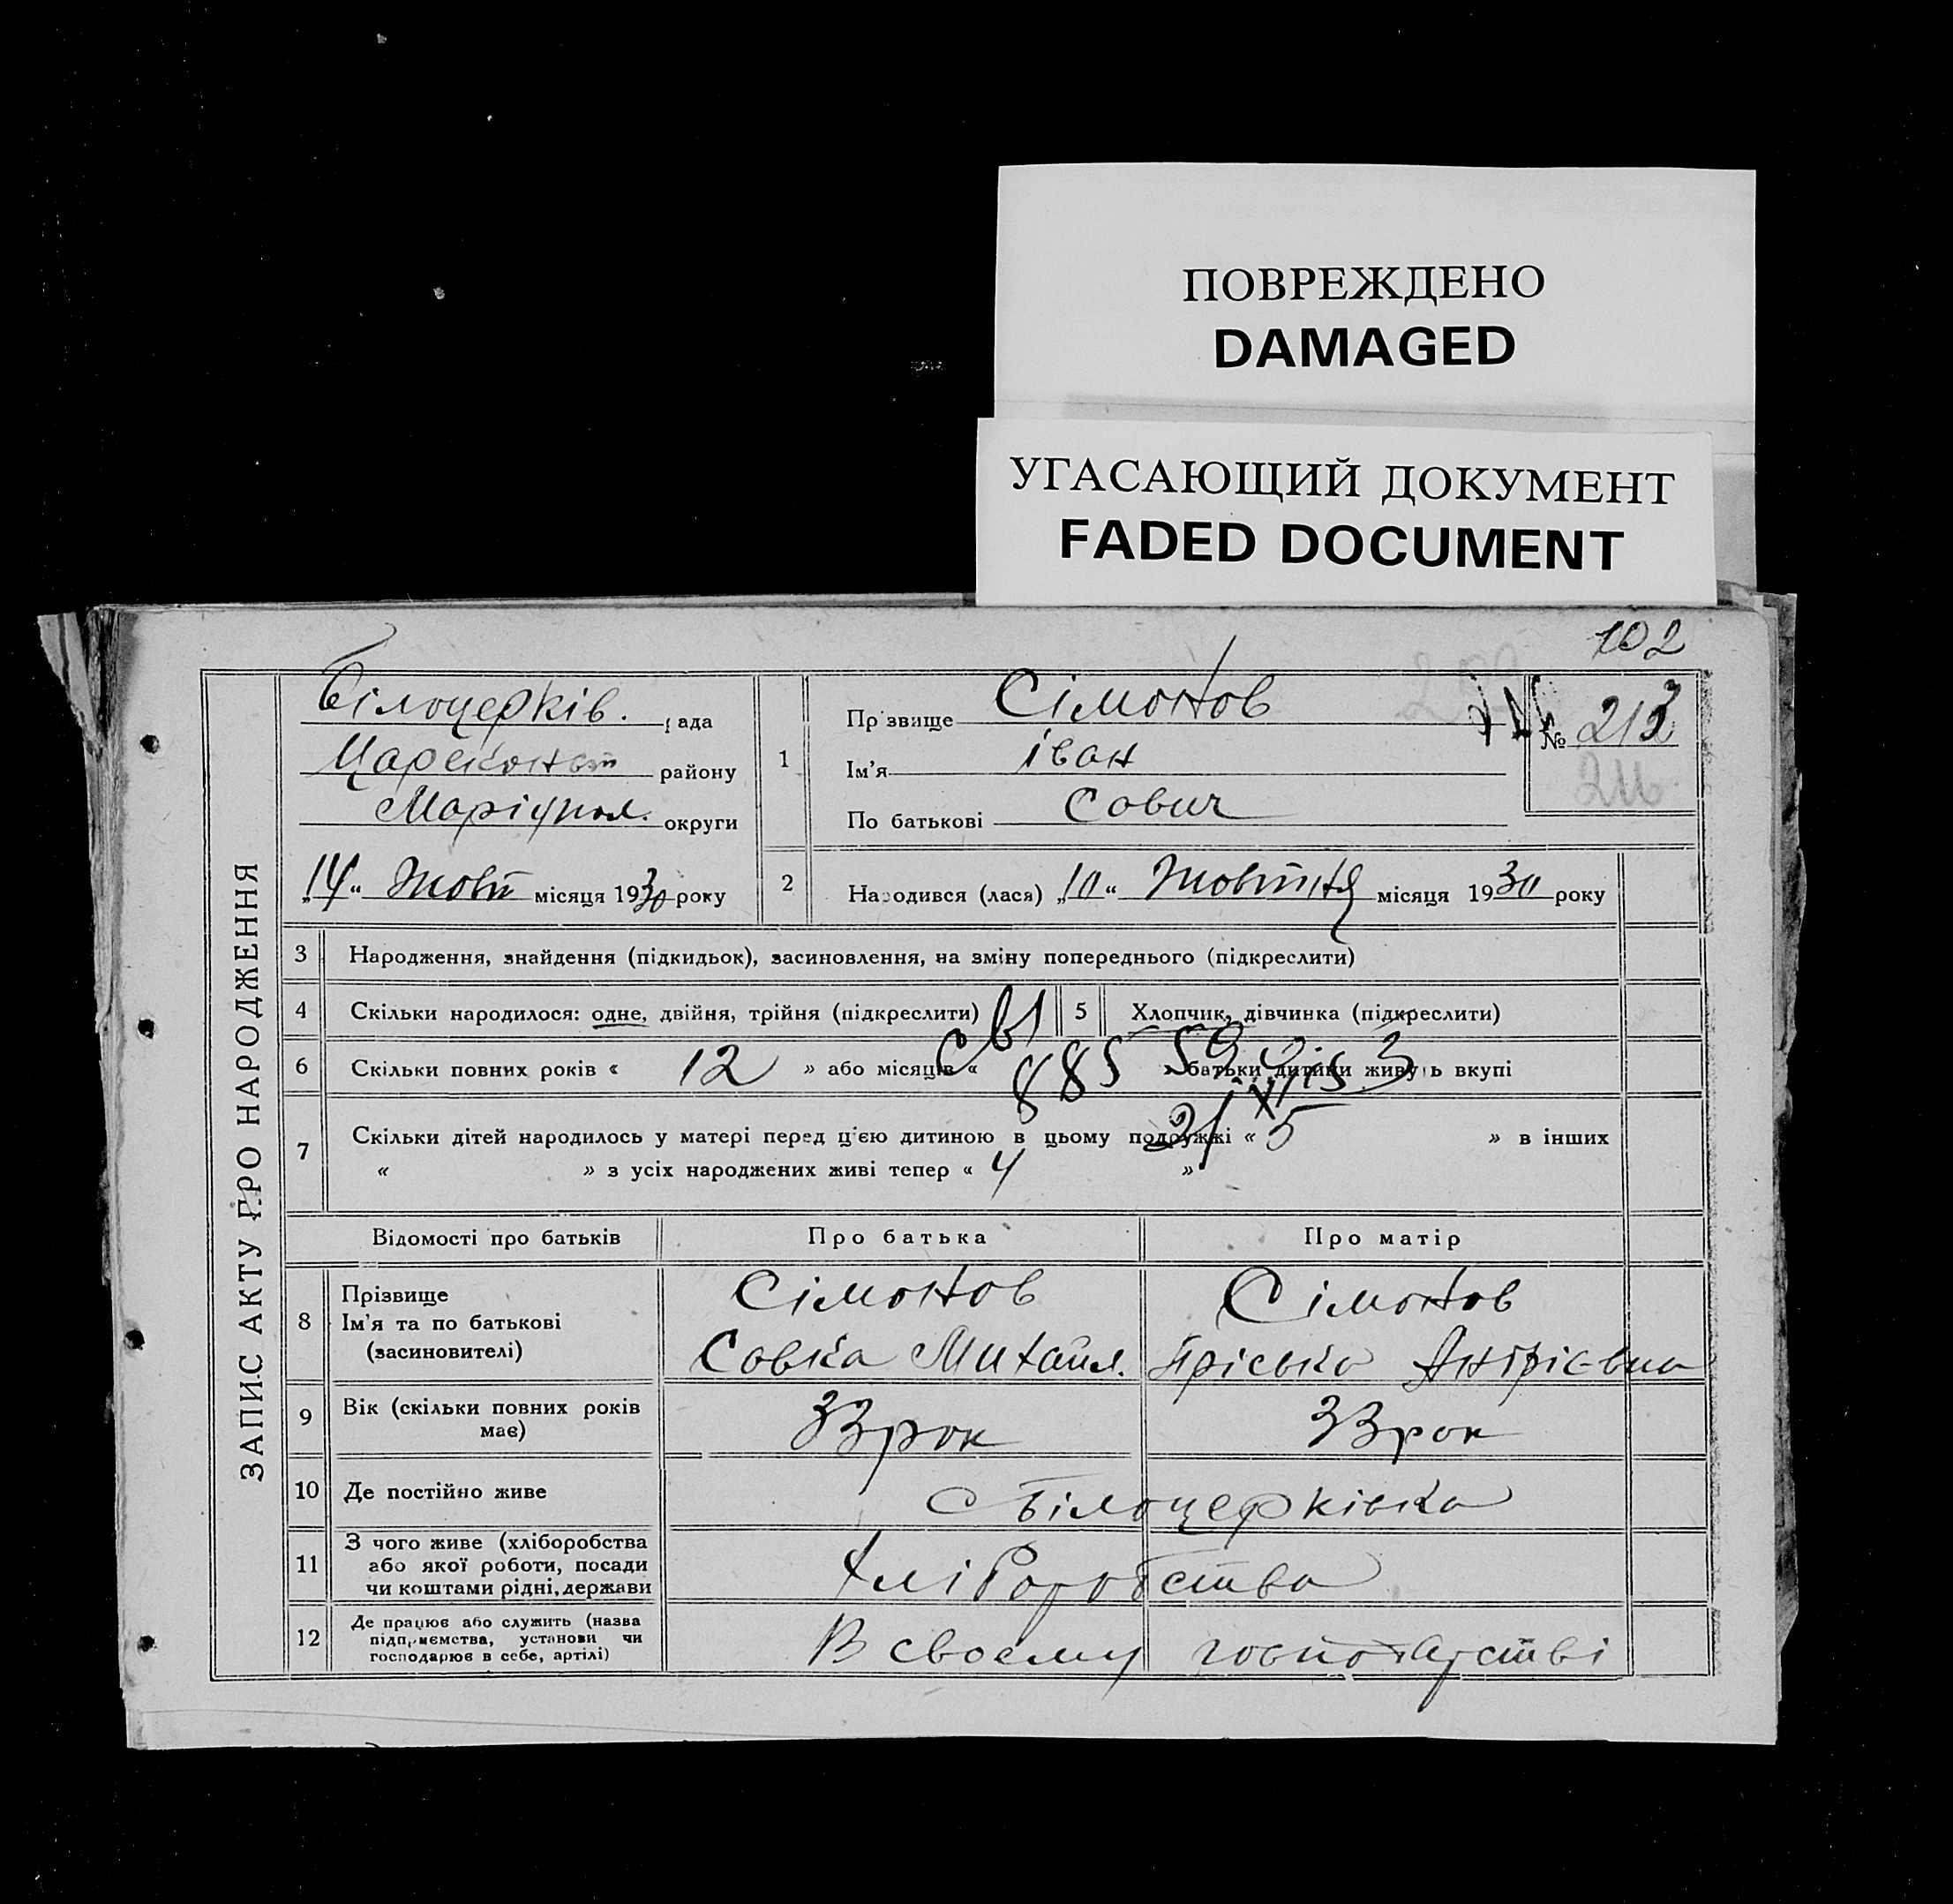 ПОВРЕЖДЕНО
DAMAGED
УГАСАЮЩИЙ ДОКУМЕНТ
FADED DOCUMENT
102
ЗАПИС АКТУ ПРО НАРОДЖЕННЯ
Білоцерків. рада
району
Маріупол. округи
„14“ Жовт місяця 1930 року
1
Прізвище Сімонов
Ім'я Іван
По батькові Сович
№ 213
2
Народився (лася) „10“ Жовтня місяця 1930 року
3 Народження, знайдення (підкидьок), засиновлення, на зміну попереднього (підкреслити)
4 Скільки народилося: одне, двійня, трійня (підкреслити)
5 Хлопчик, дівчинка (підкреслити)
6 Скільки повних років « 12 » або місяців « » батьки дитини живуть вкупі
7 Скільки дітей народилось у матері перед цією дитиною в цьому подружжі « 5 » в інших
« » з усіх народжених живі тепер « 4 »
Відомості про батьків Про батька Про матір
8 Прізвище
Ім'я та по батькові
(засиновителі)
Сімонов
Совка Михайл.
Сімонов
Пріська Андрієвна
9 Вік (скільки повних років
має)
33 рок
33 рок
10 Де постійно живе
с Білоцерківка
11 З чого живе (хліборобства
або якої роботи, посади
чи коштами рідні, держави
Хліборобства
12 Де працює або служить (назва
підприємства, установи чи
господарює в себе, артілі)
В своему господарстві